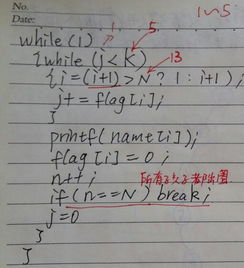 No.
Date:
1
1~5
while(1)
5
{while (j<K)
13
{i=(i+1)>N?1:i+1);
j+=flag[i];
}
printf(name[i]);
flag[i]=0;
n++;
所有孩子都出圈
if(n==N)break;
j=0
}
}